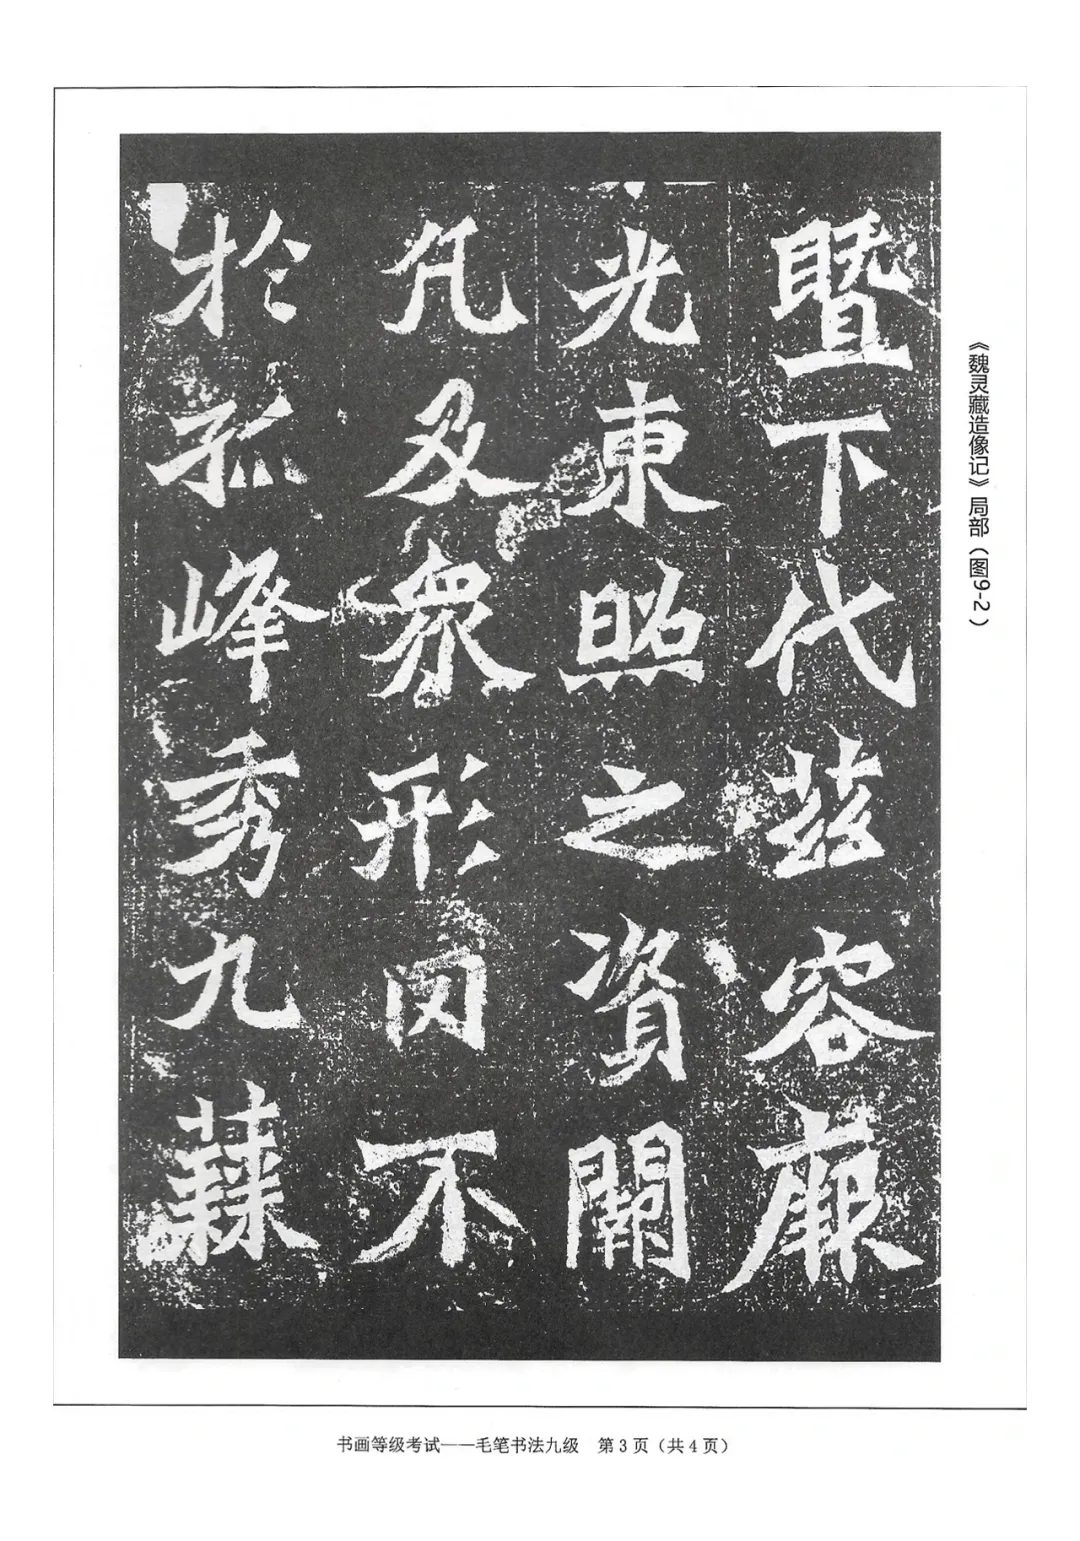 暨下代茲容厤
光東照之資闢
凡及眾形罔不
於孤峰秀九蕀
《魏灵藏造像记》局部（图9-2）
书画等级考试——毛笔书法九级　第3页（共4页）